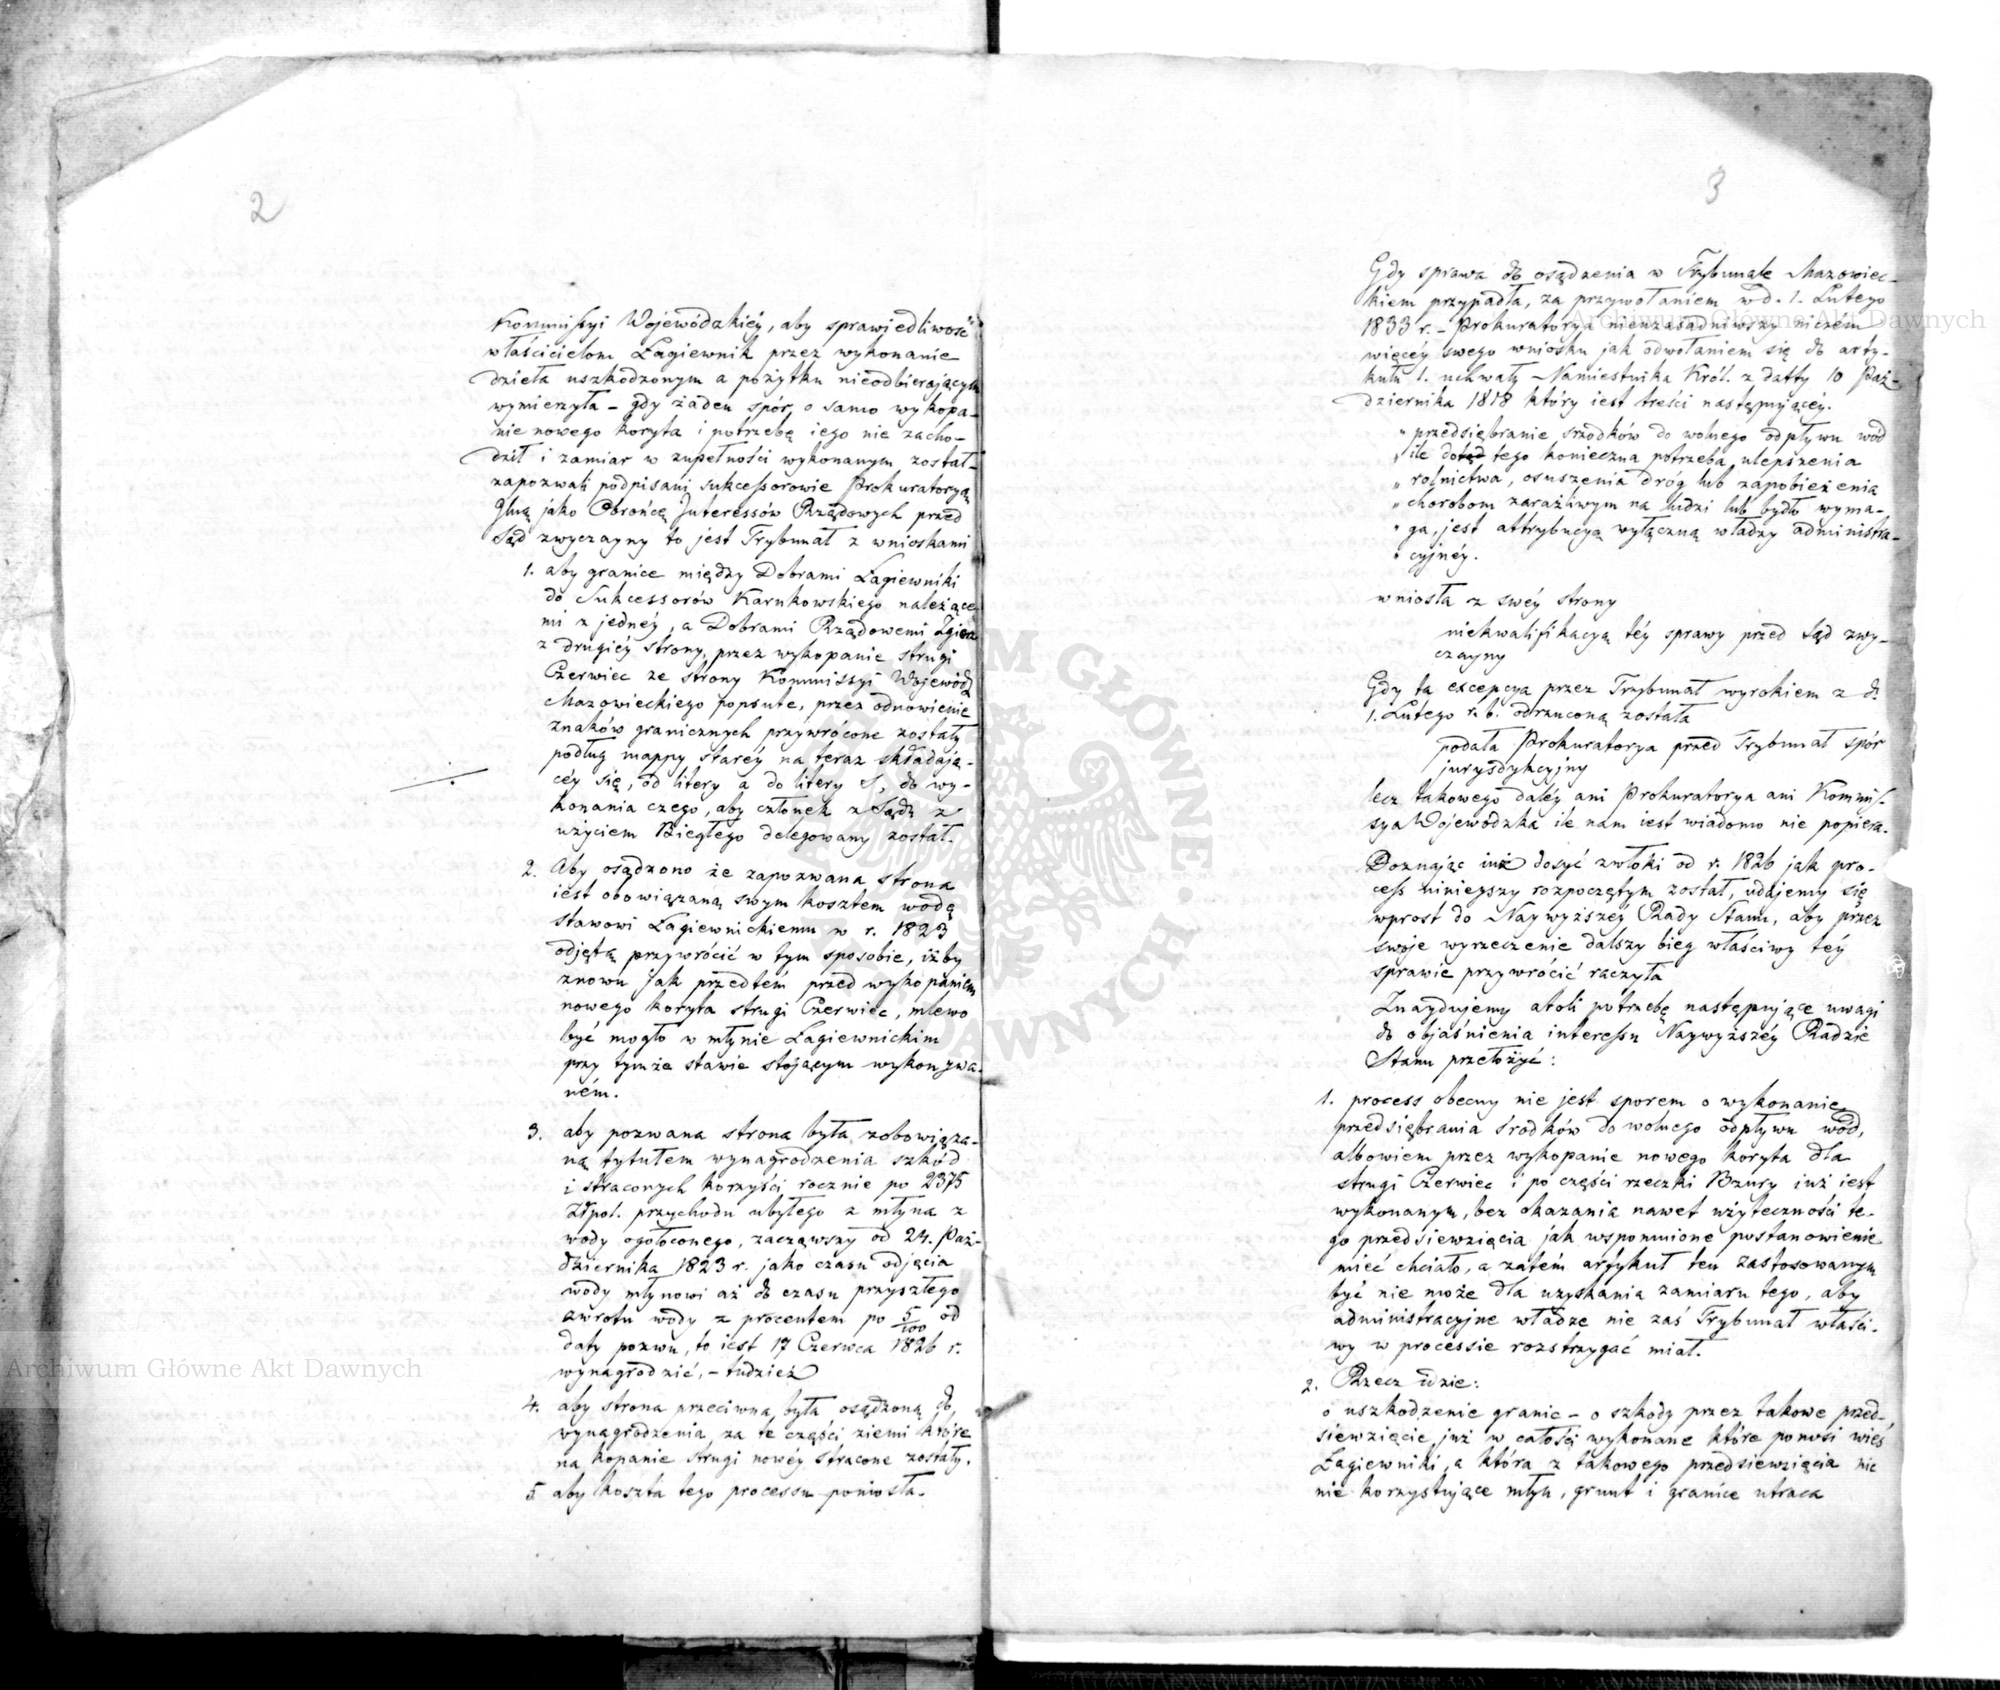 2
Kommissyi Wojewódzkiéy, aby sprawiedliwość
właścicielom Łagiewnik przez wykonanie
dzieła uszkodzonym a pożytku nieodbierającym
wymierzyła – gdy żaden spór, o samo wykopa-
nie nowego koryta i potrzebę iego nie zacho-
dził i zamiar w zupełności wykonanym został –
zapozwali podpisani sukcessorowie Prokuratoryą
Jlną jako Obrońcę Interessów Rządowych przed
Sąd zwyczayny to jest Trybunał z wnioskami
1. aby granice między Dobrami Łagiewniki
do Sukcessorów Karnkowskiego należące-
mi z jednéy, a Dobrami Rządowemi Zgierz
z drugiéy strony, przez wykopanie strugi
Czerwiec ze strony Kommissyi Wojewódz
Mazowieckiego popsute, przez odnowienie
znaków granicznych przywrócone zostały
podług mappy staréy na teraz składają-
céy się, od litery a do litery S, do wy-
konania czego, aby członek z Sądu z
użyciem Biegłego delegowany został.
2. Aby osądzono że zapozwana strona
iest obowiązaną swym kosztem wodę
stawowi Łagiewnickiemu w r. 1823
odjętą przywrócić w tym sposobie, iżby
znowu jak przedtém przed wykopaniem
nowego koryta strugi Czerwiec, mlewo
być mogło w młynie Łagiewnickim
przy tymże stawie stojącym wykonywa-
ném.
3. aby pozwana strona była zobowiąza-
ną tytułem wynagrodzenia szkód
i straconych korzyści rocznie po 2375
Złpol. przychodu ubyłego z młyna z
wody ogołoconego, zacząwszy od 24. Paź-
dziernika 1823 r. jako czasu odjęcia
wody młynowi aż do czasu przyszłego
zwrotu wody z procentem po 5/100 od
daty pozwu, to iest 17 Czerwca 1826 r.
wynagrodzić, – tudzież
4. aby strona przeciwna była osądzoną do
wynagrodzenia za te części ziemi które
na kopanie strugi nowéy stracone zostały.
5. aby koszta tego processu poniosła.
3
Gdy sprawa do osądzenia w Trybunale Mazowiec-
kiem przypadła, za przywołaniem w d. 1. Lutego
1833 r. – Prokuratorya nieuzasadniwszy niczem
więcéy swego wniosku jak odwołaniem się do arty-
kułu 1. uchwały Namiestnika Król. z datty 10 Paź-
dziernika 1818 który iest treści następującéy.
„ przedsiębranie srzodków do wolnego odpływu wód
„ ile tego konieczna potrzeba, ulepszenia
„ rolnictwa, osuszenia dróg lub zapobieżenia
„ chorobom zaraźliwym na ludzi lub bydło wyma-
„ ga, jest attrybucyą wyłączną władzy administra-
„ cyjnéy.
wniosła z swéy strony
niekwalifikacyą téy sprawy przed Sąd zwy-
czayny
Gdy ta excepcya przez Trybunał wyrokiem z d.
1. Lutego r. b. odrzuconą została
podała Prokuratorya przed Trybunał spór
jurysdykcyjny
lecz takowego daléy ani Prokuratorya ani Kommis-
sya Wojewódzka ile nam iest wiadomo nie popiera.
Doznając iuż dosyć zwłoki od r. 1826 jak pro-
cess niniejszy rozpoczętym został, udajemy się
wprost do Naywyższéy Rady Stanu, aby przez
swoje wyrzeczenie dalszy bieg właściwy téy
sprawie przywrócić raczyła
Znaydujemy atoli potrzebę następujące uwagi
do objaśnienia interessu Naywyższéy Radzie
Stanu przełożyć:
1. process obecny nie jest sporem o wykonanie
przedsiębrania środków do wolnego odpływu wód,
albowiem przez wykopanie nowego koryta dla
strugi Czerwiec i po części rzeczki Bzury iuż iest
wykonanym, bez okazania nawet użyteczności te-
go przedsiewzięcia jak wspomnione postanowienie
mieć chciało, a zatém artykuł ten zastosowanym
być nie może dla uzyskania zamiaru tego, aby
administracyjne władze nie zaś Trybunał właści-
wy w processie rozstrzygać miał.
2. Rzecz idzie:
o uszkodzenie granic – o szkody przez takowe przed-
siewzięcie już w całości wykonane które ponosi wieś
Łagiewniki, a która z takowego przedsiewzięcia nic
nie korzystające młyn, grunt i granice utraca
Archiwum Główne Akt Dawnych
Archiwum Główne Akt Dawnych
ARCHIWUM GŁÓWNE AKT DAWNYCH